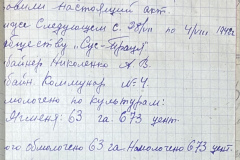 настоящий акт.
Следующем с. 28/VII по 4/VIII 194
обществу "Сус-Тращя"
байнер Николенко А В.
байн Коммунар №4.
молочено по культурам:
Ячменя: 63 га 673 цент.
ого обмолочено 63 га. Намолочено 673 цент.